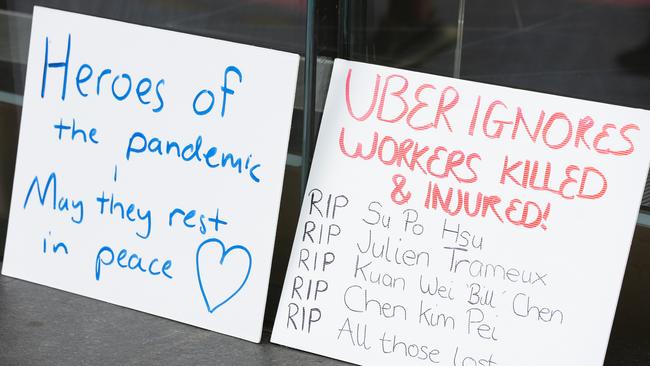 Heroes of
the pandemic
,
May they rest
in peace ♡
UBER IGNORES
WORKERS KILLED
& INJURED!
RIP Su Po Hsu
RIP Julien Trameux
RIP Kuan Wei 'Bill' Chen
RIP Chen Kim Pei
RIP All those lost